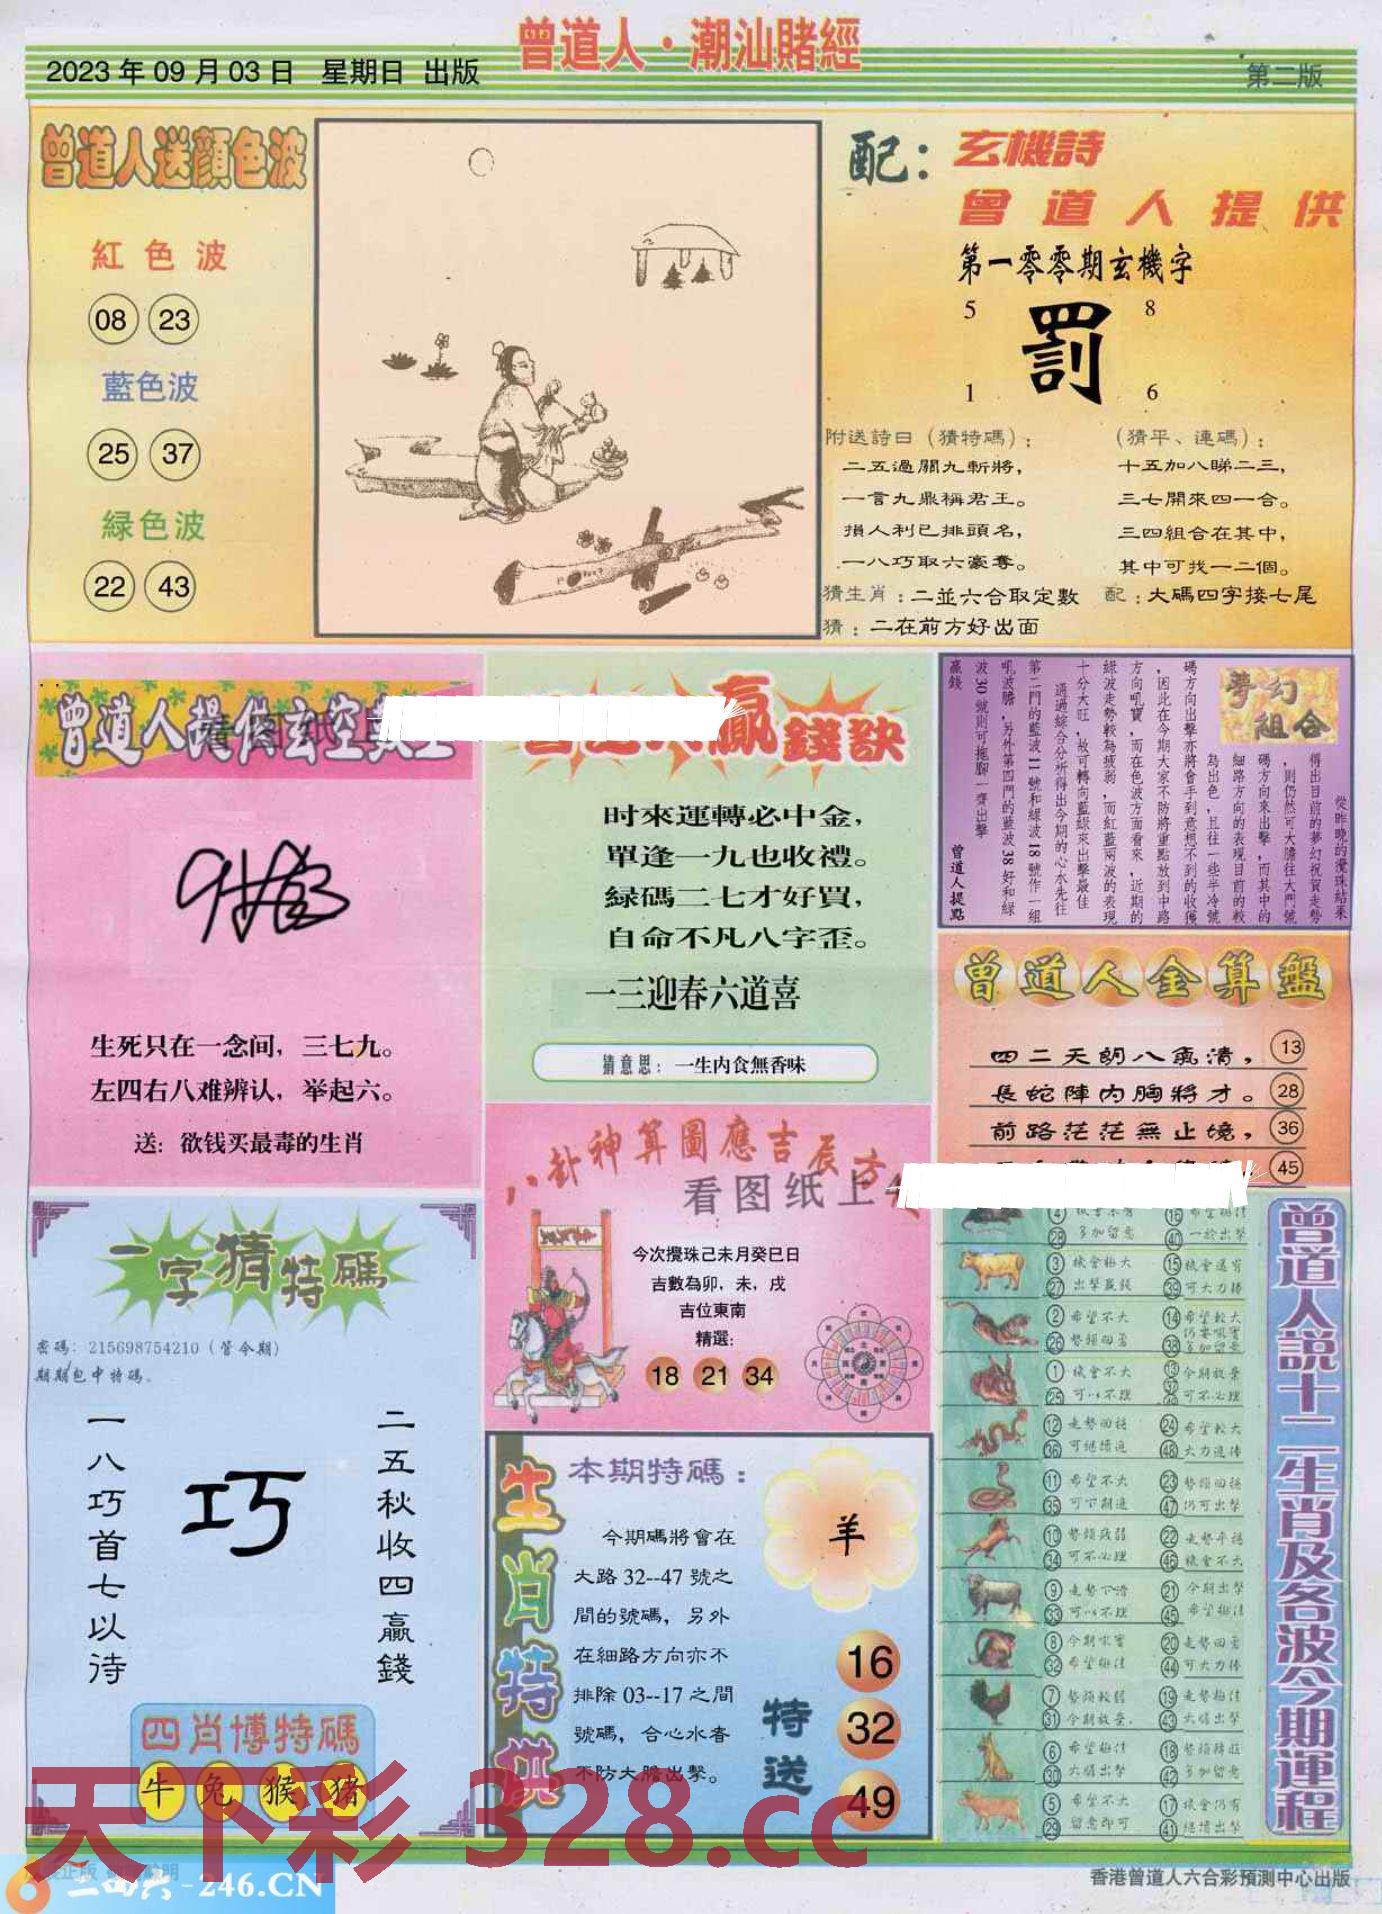 曾道人·潮汕賭經
2023年09月03日 星期日 出版
第二版
曾道人送顏色波
紅色波
08 23
藍色波
25 37
緑色波
22 43
配：
玄機詩
曾道人提供
第一零零期玄機字
5 8
罰
1 6
附送詩曰（猜特碼）：
二五過關九斬將，
一言九鼎稱君王。
損人利已排頭名，
一八巧取六豪奪。
猜生肖：二並六合取定數
猜：二在前方好出面
（猜平、連碼）：
十五加八睇二三，
三七開來四一合。
三四組合在其中，
其中可找一二個。
配：大碼四字接七尾
曾道人提供玄空
生死只在一念间，三七九。
左四右八难辨认，举起六。
送：欲钱买最毒的生肖
贏錢訣
时來運轉必中金，
單逢一九也收禮。
緑碼二七才好買，
自命不凡八字歪。
一三迎春六道喜
猜意思：一生内食無香味
夢幻組合
從昨晚的攪珠結果
得出目前的夢幻祝賀走勢
，則仍然可大膽往大門號
碼方向來出擊，而其中的
細路方向的表現目前的較
為出色，且往一些半冷號
碼方向出擊亦將會手到意想不到的收獲
，因此在今期大家不防將重點放到中路
方向吼寶，而在色波方面看來，近期的
緑波走勢較為疲弱，而紅藍兩波的表現
十分大旺，故可轉向藍緑來出擊最佳
通過綜合分析得出今期的心水先往
第二門的藍波11號和緑波18號作一組
吼波膽，另外第四門的藍波38好和緑
波30號則可拖腳一齊出擊
贏錢
曾道人提點
曾道人金算盤
四二天朗八氣清， 13
長蛇陣内胸將才。 28
前路茫茫無止境， 36
45
八卦神算圖應吉辰方
看图纸上
今次攪珠己未月癸巳日
吉數為卯，未，戌
吉位東南
精選：
18 21 34
一字猜特碼
密碼：215698754210（管今期）
期期包中特碼。
二五秋收四贏錢
巧
一八巧首七以待
四肖博特碼
牛 兔 猴 猪
生肖特供
本期特碼：
羊
今期碼將會在
大路32--47號之
間的號碼，另外
在細路方向亦不
排除03--17之間
號碼，合心水者
不防大膽出擊。
特送
16
32
49
曾道人説十二生肖及各波今期運程
④ ⑯ 希望極佳
㉘ 多加留意 ㊵ 一於出擊
③ 機會極大 ⑮ 機會還有
㉗ 出擊贏錢 ㊴ 可大力捧
② 希望不大 ⑭ 希望較大
㉖ 勢頭回勇 ㊳
① 機會不大 ⑬ 今期放棄
㉕ 可以不理 可不必理
⑫ 走勢回穩 ㉔ 希望較大
㊱ 可繼續追 ㊽ 大力追捧
⑪ 希望不大 ㉓ 勢頭回穩
㉟ 可下期追 ㊼ 仍可出擊
⑩ 勢頭疲弱 ㉒ 走勢平穩
㉞ 可不必理 ㊻ 機會不大
⑨ 走勢下滑 ㉑ 今期出擊
㉝ 可以不理 ㊺ 希望極佳
⑧ 今期吼寶 ⑳ 走勢回勇
㉜ 希望極佳 ㊹ 可大力捧
⑦ 勢頭較弱 ⑲ 走勢極佳
㉛ 今期放棄 ㊸ 大膽出擊
⑥ 希望極佳 ⑱ 勢頭轉旺
㉚ 大膽出擊 ㊷ 多加留意
⑤ 希望不大 ⑰ 機會仍有
㉙ 留意即可 ㊶ 繼續出擊
天下彩 328.cc
二四六-246.CN
香港曾道人六合彩預測中心出版